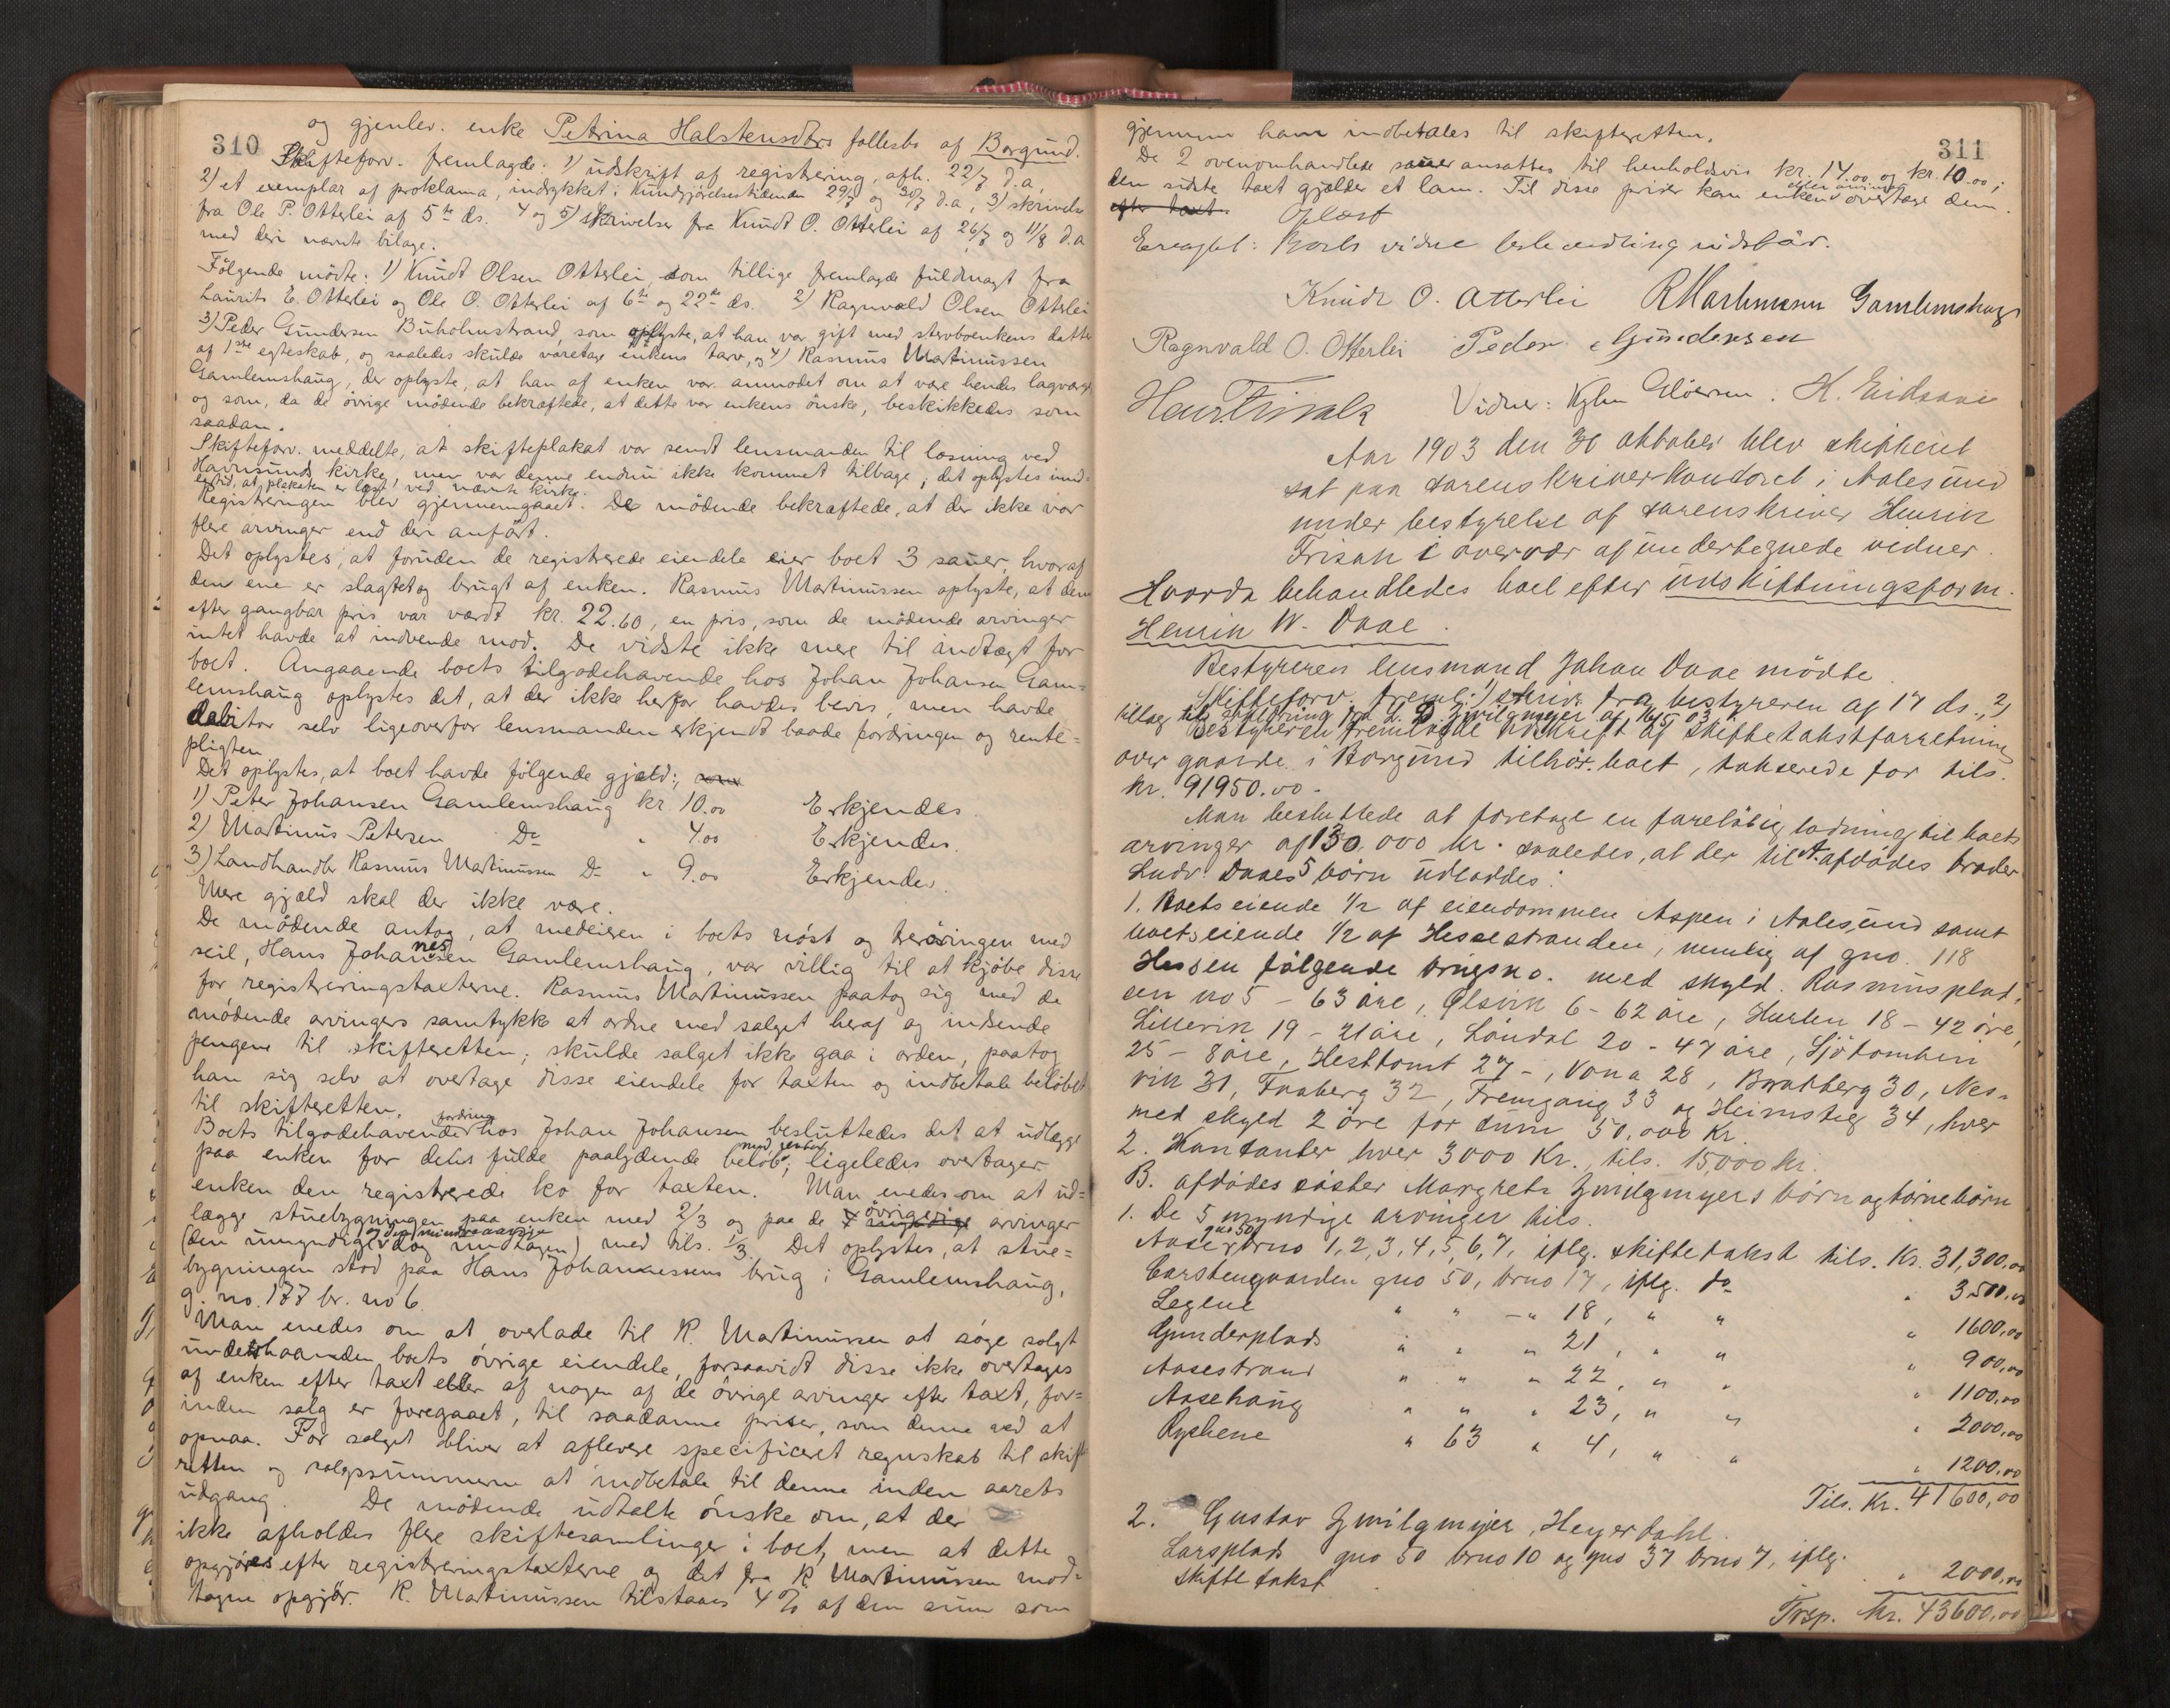 310
og gjenlev. enke Petrina Halstensdtrs fællesbo af Borgund.
Skifteforv. fremlagde: 1) udskrift af registrering, afh. 22/7 d.a,
2) et exemplar af proklama, indrykket i Kundgjørelsestidenden 29/7 og 30/7 d.a, 3) skrivelse
fra Ole P. Otterlei af 5te ds. 4 og 5) skrivelser fra Knudt O. Otterlei af 26/7 og 11/8 d.a
med deri nævnte bilage.
Følgende mødte: 1) Knudt Olsen Otterlei, som tillige fremlagde fuldmagt fra
Laurits E. Otterlei og Ole O. Otterlei af 6te og 22de ds. 2) Ragnvald Olsen Otterlei
3) Peder Gundersen Buholmstrand, som oplyste, at han var gift med stervboenkens datter
af 1ste egteskab, og saaledes skulde varetage enkens tarv, og 4) Rasmus Martinussen
Gamlemshaug, der oplyste, at han af enken var anmodet om at være hendes lagværge
og som, da de øvrige mødende bekræftede, at dette var enkens ønske, beskikkedes som
saadan.
Skifteforv. meddelte, at skifteplakat var sendt lensmanden til læsning ved
Havnsunds kirke, men var denne endnu ikke kommet tilbage; det oplystes imid-
lertid, at plakaten er læst ved nævnte kirke.
Registreringen blev gjennemgaaet. De mødende bekræftede, at der ikke var
flere arvinger end der anført.
Det oplystes, at foruden de registrerede eiendele eier boet 3 sauer, hvoraf
den ene er slagtet og brugt af enken. Rasmus Martinussen oplyste, at den
efter gangbar pris var værdt kr. 22.60, en pris, som de mødende arvinger
intet havde at indvende mod. De vidste ikke mere til indtægt for
boet. Angaaende boets tilgodehavende hos Johan Johansen Gam-
lemshaug oplystes det, at der ikke herfor havdes bevis, men havde
debitor selv ligeoverfor lensmanden erkjendt baade fordringen og rente-
pligten
Det oplystes, at boet havde følgende gjæld:
1) Peter Johansen Gamlemshaug kr. 10.00 Erkjendes
2) Martinus Petersen Do " 4.00 Erkjendes.
3) Landhandler Rasmus Martinussen Do " 9.00 Erkjendes.
Mere gjæld skal der ikke være.
De mødende antog, at medeieren i boets nøst og treøringen med
seil, Hans Johannessen Gamlemshaug, var villig til at kjøbe disse
for registreringstaxterne. Rasmus Martinussen paatog sig med de
mødende arvingers samtykke at ordne med salget heraf og indsende
pengene til skifteretten; skulde salget ikke gaa i orden, paatog
han sig selv at overtage disse eiendele for taxten og indbetale beløbet
til skifteretten.
Boets tilgodehavende fordring hos Johan Johansen besluttedes det at udlægge
paa enken for dets fulde paalydende beløb med renter; ligeledes overtager
enken den registrerede ko for taxten. Man enedes om at ud-
lægge stuebygningen paa enken med 2/3 og paa de øvrige arvinger
(den umyndige dog undtagen) med tils. 1/3. Det oplystes, at stue-
bygningen stod paa Hans Johannessens brug i Gamlemshaug,
g. no. 177 br. no 6.
Man enedes om at overlade til R. Martinussen at søge solgt
underhaanden boets øvrige eiendele, forsaavidt disse ikke overtages
af enken efter taxt eller af nogen af de øvrige arvinger efter taxt, for-
inden salg er foregaaet, til saadanne priser, som denne ved at
opnaa. For salget bliver at aflevere specificeret regnskab til skifte
retten og salgssummerne at indbetale til denne inden aarets
udgang. De mødende udtalte ønske om, at der
ikke afholdes flere skiftesamlinger i boet, men at dette
opgjøres efter registreringstaxterne og det fra R. Martinussen mod-
tagne opgjør. R. Martinussen tilstaaes 4 % af den sum som
311
gjennem ham indbetales til skifteretten.
De 2 ovenomhandlede sauer ansattes til henholdsvis kr. 14.00 og kr. 10.00;
den sidste taxt gjælder et lam. Til disse priser kan enken eller arvinger overtage dem
efter taxt. Oplæst
Eragtet: Boets videre behandling udstår.
Knudt O. Otterlei R Martinussen Gamlemshaug
Ragnvald O. Otterlei Peder Gundersen
Henr. Frisak Vidner: H. Eidsaae
Aar 1903 den 30 oktober blev skifteret
sat paa sorenskriverkontoret i Aalesund
under bestyrelse af sorenskriver Henrik
Frisak i overvær af undertegnede vidner.
Hvorda behandledes boet efter udskiftningsform.
Henrik W. Daae.
Bestyreren lensmand Johan Daae mødte.
Skifteforv. freml. 1) skriv. fra bestyreren af 17 ds., 2)
Bestyreren fremlagde udskrift af skiftetakstforretning
over gaarde i Borgund tilhør. boet, takserede for tils.
kr. 91950.00.
Man besluttede at foretage en foreløbig lodning til boets
arvinger af 130,000 kr. saaledes, at der til A. afdødes broder
Ludv. Daaes 5 børn udloddes:
1. Boets eiende 1/2 af eiendommen Aspen i Aalesund samt
boets eiende 1/2 af Hessestranden, nemlig af gno. 118
Hessen følgende brugsno. med skyld. Rasmusplad-
sen no 5 – 63 øre, Ølsvik 6 – 62 øre, Hurlen 18 – 42 øre,
Lillevik 19 – 21 øre, Løndal 20 – 47 øre, Sjøtomten
25 – 8 øre, Hesttomt 27 –, Vona 28, Bratberg 30, Nes-
vik 31, Fraberg 32, Fremgang 33 og Heimsteg 34, hver
med skyld 2 øre for sum 50,000 kr.
2. Kontanter hver 3000 kr., tils. 15,000 kr.
B. afdødes søster Margrete Zwilgmeyers børn og børnebørn
1. De 5 myndige arvinger tils.
Aase gno 50 brno 1, 2, 3, 4, 5, 6, 7, iflg. skiftetakst tils. Kr. 31,300,00
Carstengaarden gno 50, brno 17, iflg. do " 3500,00
Legene " " " 18, " " " 1600,00
Gunderplads " " " 21, " " " 900,00
Aasestrand " " " 22, " " " 1100,00
Aasehaug " " " 23, " " " 2000,00
Rychene " 63 " 4, " " " 1200,00
Tils. Kr. 41600,00
2. Gustav Zwilgmeyer, Heyerdahl.
Larsplads gno 50 brno 10 og gno 37 brno 7, iflg.
skiftetakst " 2000,00
Trsp. Kr. 43600,00